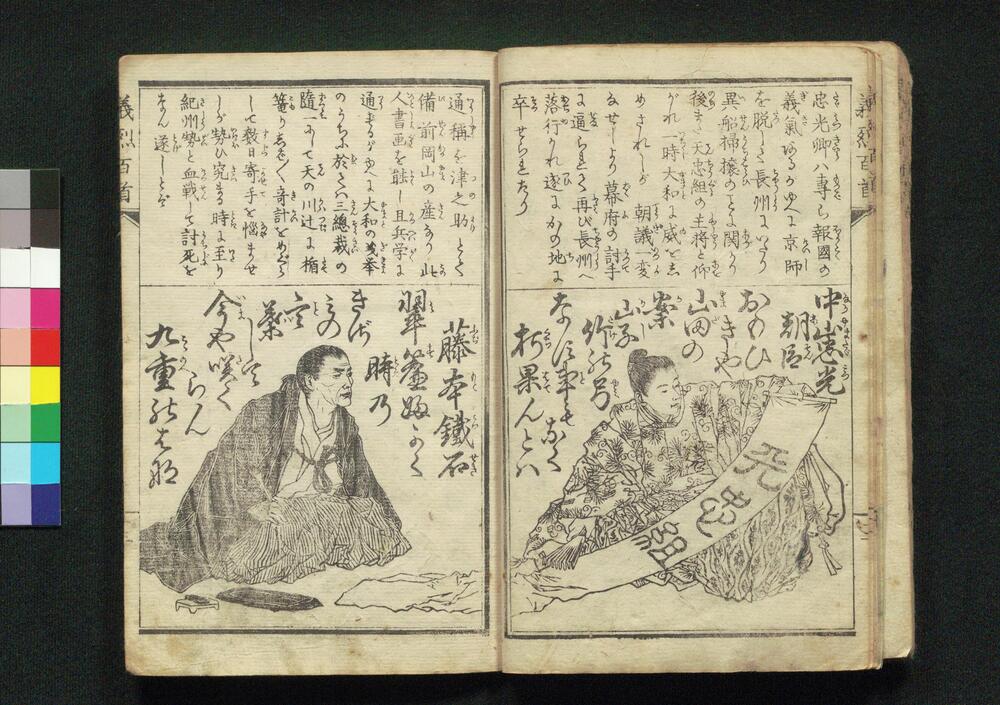 義烈百首
忠光卿ハ専ら報國の
義氣あるがゆゑに京師
を脱して長州にいたり
異船掃攘のことに関り
後また天忠組の主将と仰
がれ一時大和に威を示
めされしが朝議一変
なせしより幕府の討手
に逼られて再び長州へ
落行れ遂にかの地に
卒せられたり
中山忠光
朝臣
おもひ
きや
山田の
案
山子
竹の弓
なす事も
なく
朽果んとハ
天忠組
通稱を津之助といふ
備前岡山の産なり此
人書画を能し且兵学に
通ずるがゆゑに大和の義挙
のうちに於てハ三總裁の
随一にして天の川辻に楯
篭りしもよく奇計をめぐら
して数日寄手を悩ませ
しが勢ひ究まる時に至り
紀州勢と血戦して討死を
なん遂しとぞ
藤本鐵石
翠簾ごしに
時乃
きぬ
今や咲く
らん
九重の
義烈百首